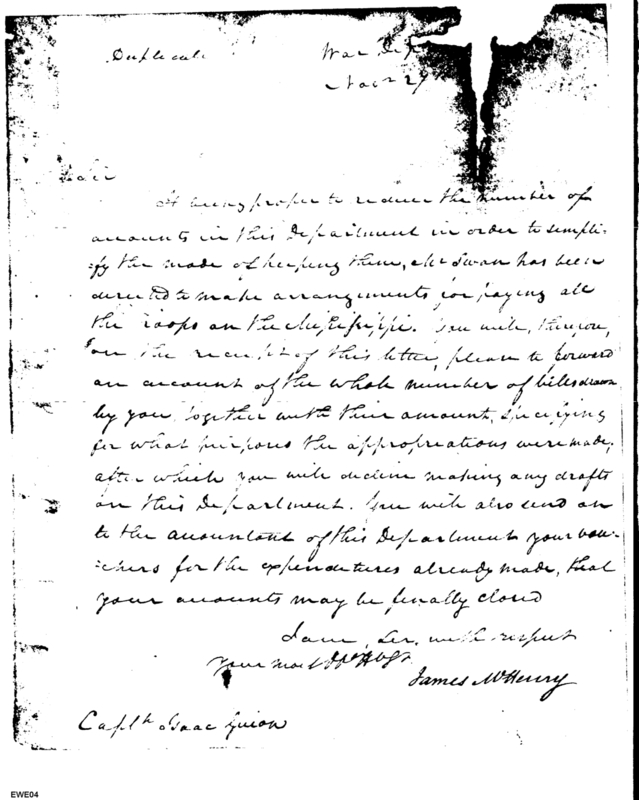 Duplicate
War Dept
29
Sir
It being proper to reduce the number of
accounts in this Department in order to simpli-
-fy the mode of keeping them, Mr Swan has been
directed to make arrangements for paying all
the troops on the Mississippi. You will, therefore,
on the receipt of this letter, please to forward
an account of the whole number of bills drawn
by you together with their amount, specifying
for what purposes the appropriations were made,
after which you will decline making any drafts
on this Department. You will also send on
to the accountant of this Department your vou-
-chers for the expenditures already made, that
your accounts may be finally closed
I am, Sir, with respect
your most Obt
James McHenry
Captn Isaac Guion
EWE04